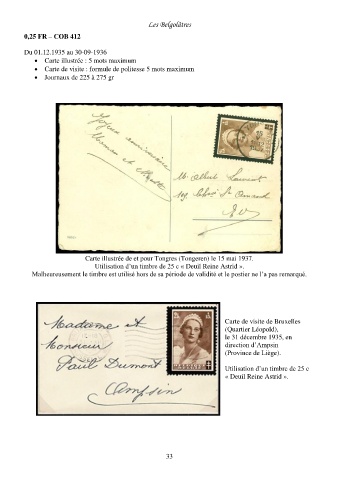 Les Belgolâtres
0,25 FR – COB 412
Du 01.12.1935 au 30-09-1936
• Carte illustrée : 5 mots maximum
• Carte de visite : formule de politesse 5 mots maximum
• Journaux de 225 à 275 gr
Joyeux anniversaire
M. Albert Laurent
Carte illustrée de et pour Tongres (Tongeren) le 15 mai 1937.
Utilisation d'un timbre de 25 c « Deuil Reine Astrid ».
Malheureusement le timbre est utilisé hors de sa période de validité et le postier ne l'a pas remarqué.
Madame et
Monsieur
Paul Dumont
Ampsin
Carte de visite de Bruxelles
(Quartier Léopold),
le 31 décembre 1935, en
direction d'Ampsin
(Province de Liège).
Utilisation d'un timbre de 25 c
« Deuil Reine Astrid ».
33